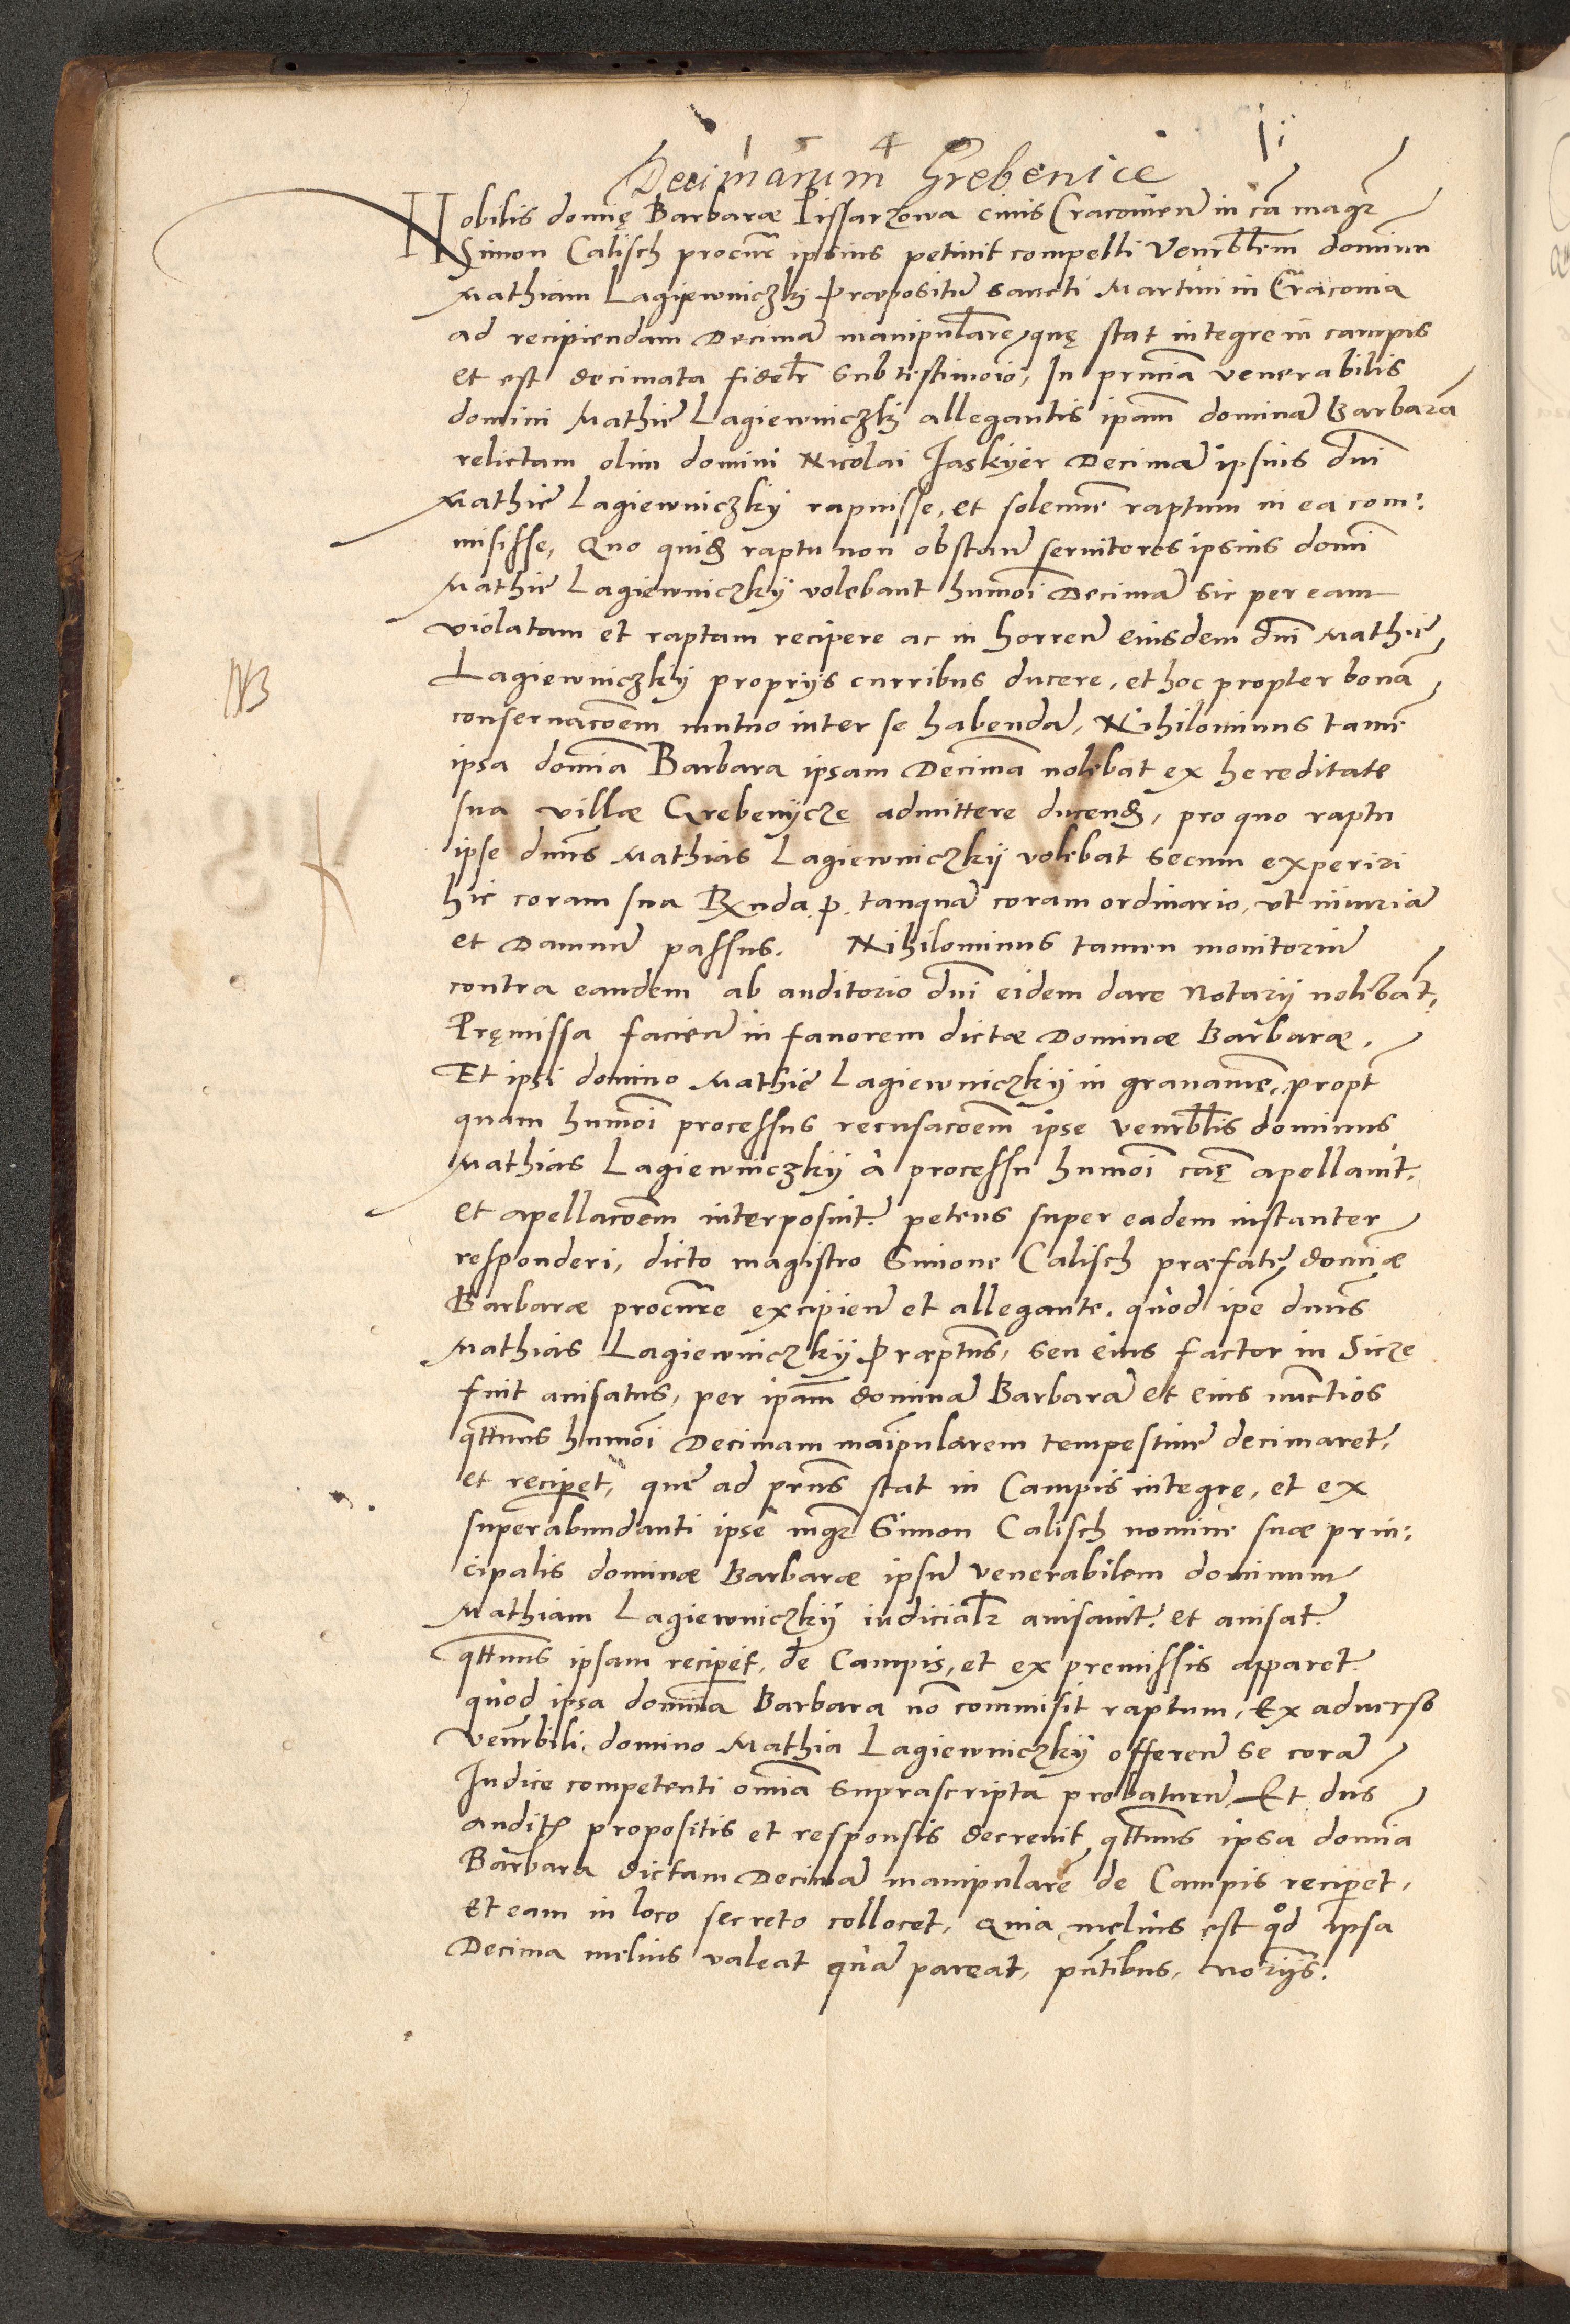 Decimarum Grebenice
Nobilis domię Barbaræ Pissarzowa civis Cracovien̄ in cā magr̄
Simon Calisch procur̄ ipsius petivit compelli Venerb̄lem dominū
Mathiam Lagyewniczkj Præpositū sancti Martini in Cracovia
ad recipiendam Decimā manipularē, quę stat integre in campis
et est decimata fidelr̄ sub testimoīo, In pn̄cia venerabilis
domini Mathie Lagiewniczkj allegantis ipam̄ dominā Barbarā
relictam olim domini Nicolai Jaskyer Decimā ipsius dn̄i
Mathiē Lagiewniczkÿ rapuisse, et solennē raptum in ea com:
misisse, Quo quidē raptu non obstan̄ servitores ipsius domī
Mathiē Lagiewniczkÿ volebant humōi Decimā sic per eam
violatam et raptam recipere ac in horreū eiusdem dn̄i Mathiē
NB
Lagiewniczkÿ proprÿs curribus ducere, et hoc propter bonā
conservacōem mutuo inter se habendā, Nihilominus tamē
ipsa domīa Barbara ipsam Decimā nolebat ex hereditate
sua villæ Grebenÿczę admittere ducendā, pro quo raptu
ipse dn̄us Mathias Lagiewniczkÿ volebat secum experiri
hic coram sua Rnda p. tanquā coram ordinario, ut iniuriā
et Damnū passus. Nihilominus tamen monitoriū
contra eandem ab auditorio dn̄i eidem dare Notarÿ nolebāt,
Pręmissa facien̄ in favorem dictæ Dominæ Barbaræ,
Et ipsi domino Mathiē Lagiewniczkÿ in gravamē, propt̄
quam humōi processus recusacōem ipse venerb̄lis dominus
Mathias Lagiewniczkÿ à processu humōi caę apellavit,
et apellacōem interposuit, petens super eadem instanter
responderi, dicto magistro Simone Calisch præfatę domīæ
Barbaræ procur̄e excipien̄ et allegante, quòd ipē dn̄us
Mathias Lagiewniczkÿ Præptūs, seu eius factor in Sicze
fuit avisatus, per ipam̄ dominā Barbarā et eius nuctios
qtten̄us humōi Decimam maīpularem tempestivē decimaret,
et recipet, quē ad prn̄s stat in Campis integre, et ex
superabundanti ipse mgr̄ Simon Calisch nomine suæ prin:
cipalis dominæ Barbaræ ipsū venerabilem dominum
Mathiam Lagiewniczkÿ iudicialr̄ avisavit, et avisat,
qtten̄us ipsam recipet, de Campis, et ex premissis apparet,
quòd ipsa domīa Barbara nō commisit raptum, Ex adverso
Venerbili domino Mathia Lagiewniczkÿ offeren̄ se corā
Iudice competenti omīa suprascripta probaturū, Et dn̄s
auditis propositis et responsis decrevit qtten̄us ipsa domīa
Barbara dictam Decimā manipularē de Campis recipet,
et eam in loco secreto collocet, Quia melius est qd ipsa
Decima melius valeat quā pareat, pn̄tibus, norÿs.